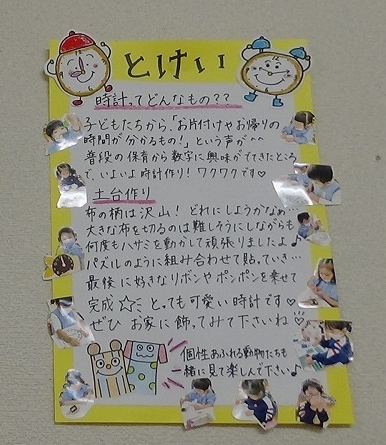 とけい
時計ってどんなもの??
子どもたちから、「お片付けやお帰りの
時間が分かるもの!」という声が^^
普段の保育から数字に興味がでてきたところ
で、いよいよ時計作り!ワクワクです♡
土台作り
布の柄は沢山!どれにしようかなぁ…
大きな布を切るのは難しそうにしながらも
何度もハサミを動かして頑張りましたよ♪
パズルのように組み合わせて貼っていき…
最後に好きなリボンやポンポンを乗せて
完成☆ミ とっても可愛い時計です♡
ぜひ お家に飾ってみて下さいね♡
個性あふれる動物たちも
一緒に見て楽しんで下さい♪